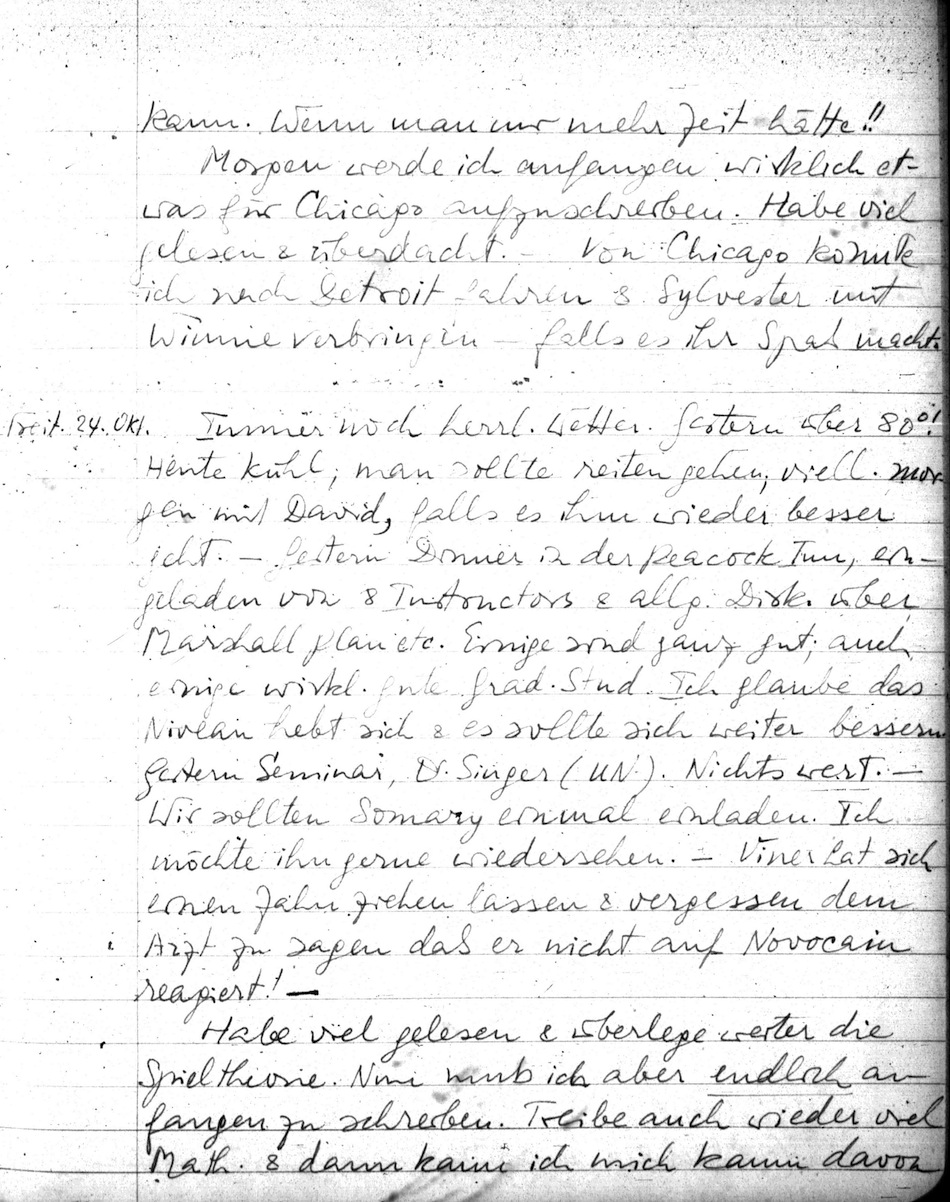 kann. Wenn man nur mehr Zeit hätte!!
Morgen werde ich anfangen wirklich et-
was für Chicago aufzuschreiben. Habe viel
gelesen & überdacht. – Von Chicago könnte
ich nach Detroit fahren & Sylvester mit
Winnie verbringen – falls es ihr Spaß macht.
Freit. 24. Okt. Immer noch herrl. Wetter. Gestern über 80°!
Heute kühl; man sollte reiten gehen, viell. mor-
gen mit David, falls es ihm wieder besser
geht. – Gestern Dinner in der Peacock Inn, ein-
geladen von 8 Instructors & allg. Disk. über
Marshall plan etc. Einige sind ganz gut; auch
einige wirkl. gute Grad. Stud. Ich glaube das
Niveau hebt sich & es sollte sich weiter bessern
Gestern Seminar, Dr. Singer (UN). Nichts wert. –
Wir sollten Somary einmal einladen. Ich
möchte ihn gerne wiedersehen. – Viner hat sich
einen Zahn ziehen lassen & vergessen dem
Arzt zu sagen daß er nicht auf Novocain
reagiert! –
Habe viel gelesen & überlege weiter die
Spieltheorie. Nun muß ich aber endlich an-
fangen zu schreiben. Treibe auch wieder viel
Math. & dann kann ich mich kaum davon